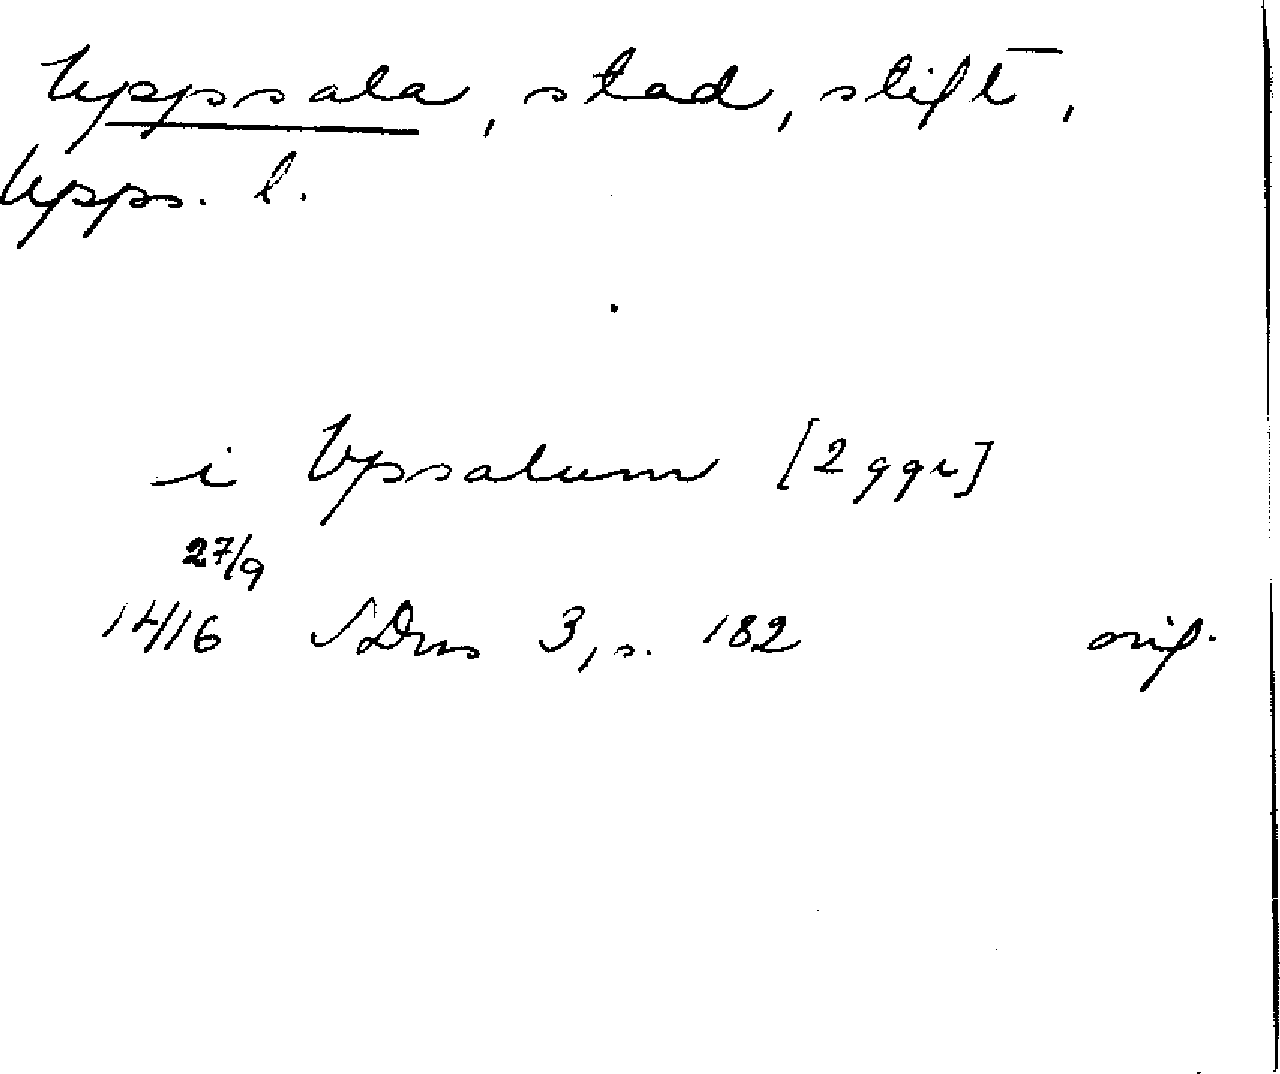 Uppsala, stad, stift,
Upps. l.
i Upsalum [2 ggr]
27/9
1416 SDns 3, s. 182 orig.